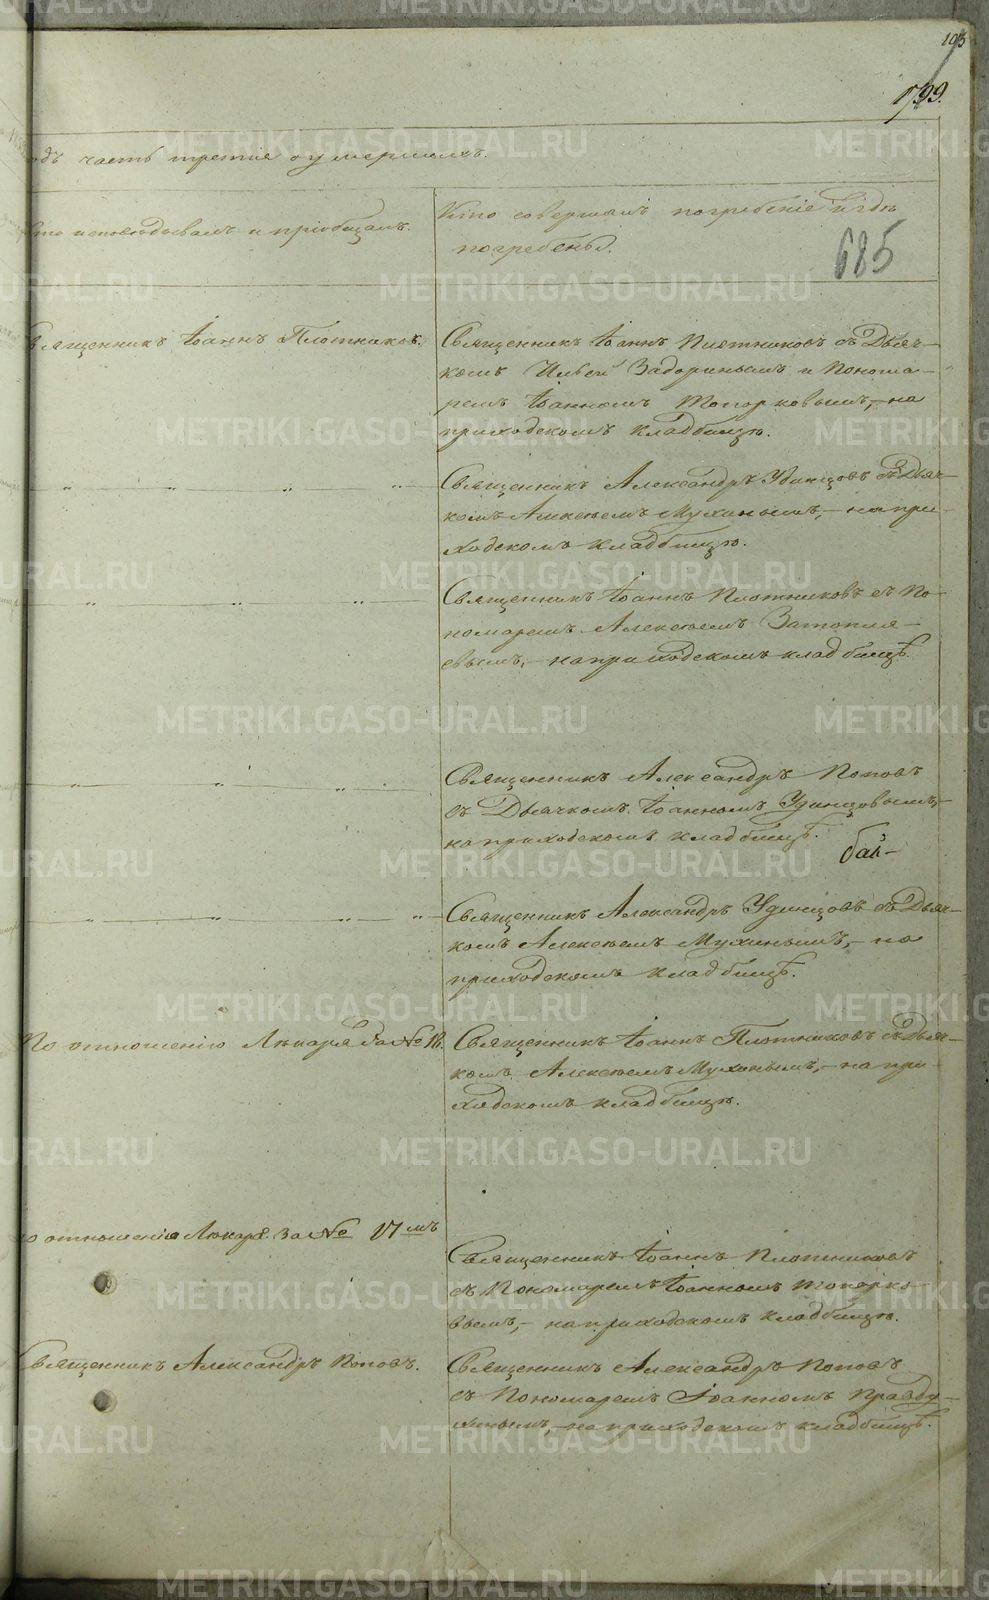 195
1799.
одъ часть третiя о умершихъ.
Кто исповѣдывалъ и прiобщалъ.
Кто совершалъ погребенiе и гдѣ
погребены.
685
Священникъ Iоаннъ Плотниковъ.
Священникъ Iоаннъ Плотниковъ съ Дьяч-
комъ Ильей Задоринымъ и Понома-
ремъ Iоанномъ Топорковымъ,- на
приходскомъ кладбищѣ.
Священникъ Александръ Удинцовъ съ Дьяч-
комъ Алексѣемъ Мухинымъ,- на при-
ходскомъ кладбищѣ.
Священникъ Iоаннъ Плотниковъ съ По-
номаремъ Алексѣемъ
евымъ,- на приходскомъ кладбищѣ.
Священникъ Александръ Поповъ
съ Дьячкомъ Iоанномъ Удинцовымъ,-
на приходскомъ кладбищѣ.
Священникъ Александръ Удинцовъ съ Дьяч-
комъ Алексѣемъ Мухинымъ,- на
приходскомъ кладбищѣ.
По отношенiю Лѣкаря за № 16.
Священникъ Iоаннъ Плотниковъ съ Дьяч-
комъ Алексѣемъ Мухинымъ,- на при-
ходскомъ кладбищѣ.
о отношенiю Лѣкаря за № 17мъ
Священникъ Iоаннъ Плотниковъ
съ Пономаремъ Iоанномъ Топорко-
вымъ,- на приходскомъ кладбищѣ.
Священникъ Александръ Поповъ.
Священникъ Александръ Поповъ
съ Пономаремъ Iоанномъ Правду-
хинымъ,- на приходскомъ кладбищѣ.
METRIKI.GASO-URAL.RU